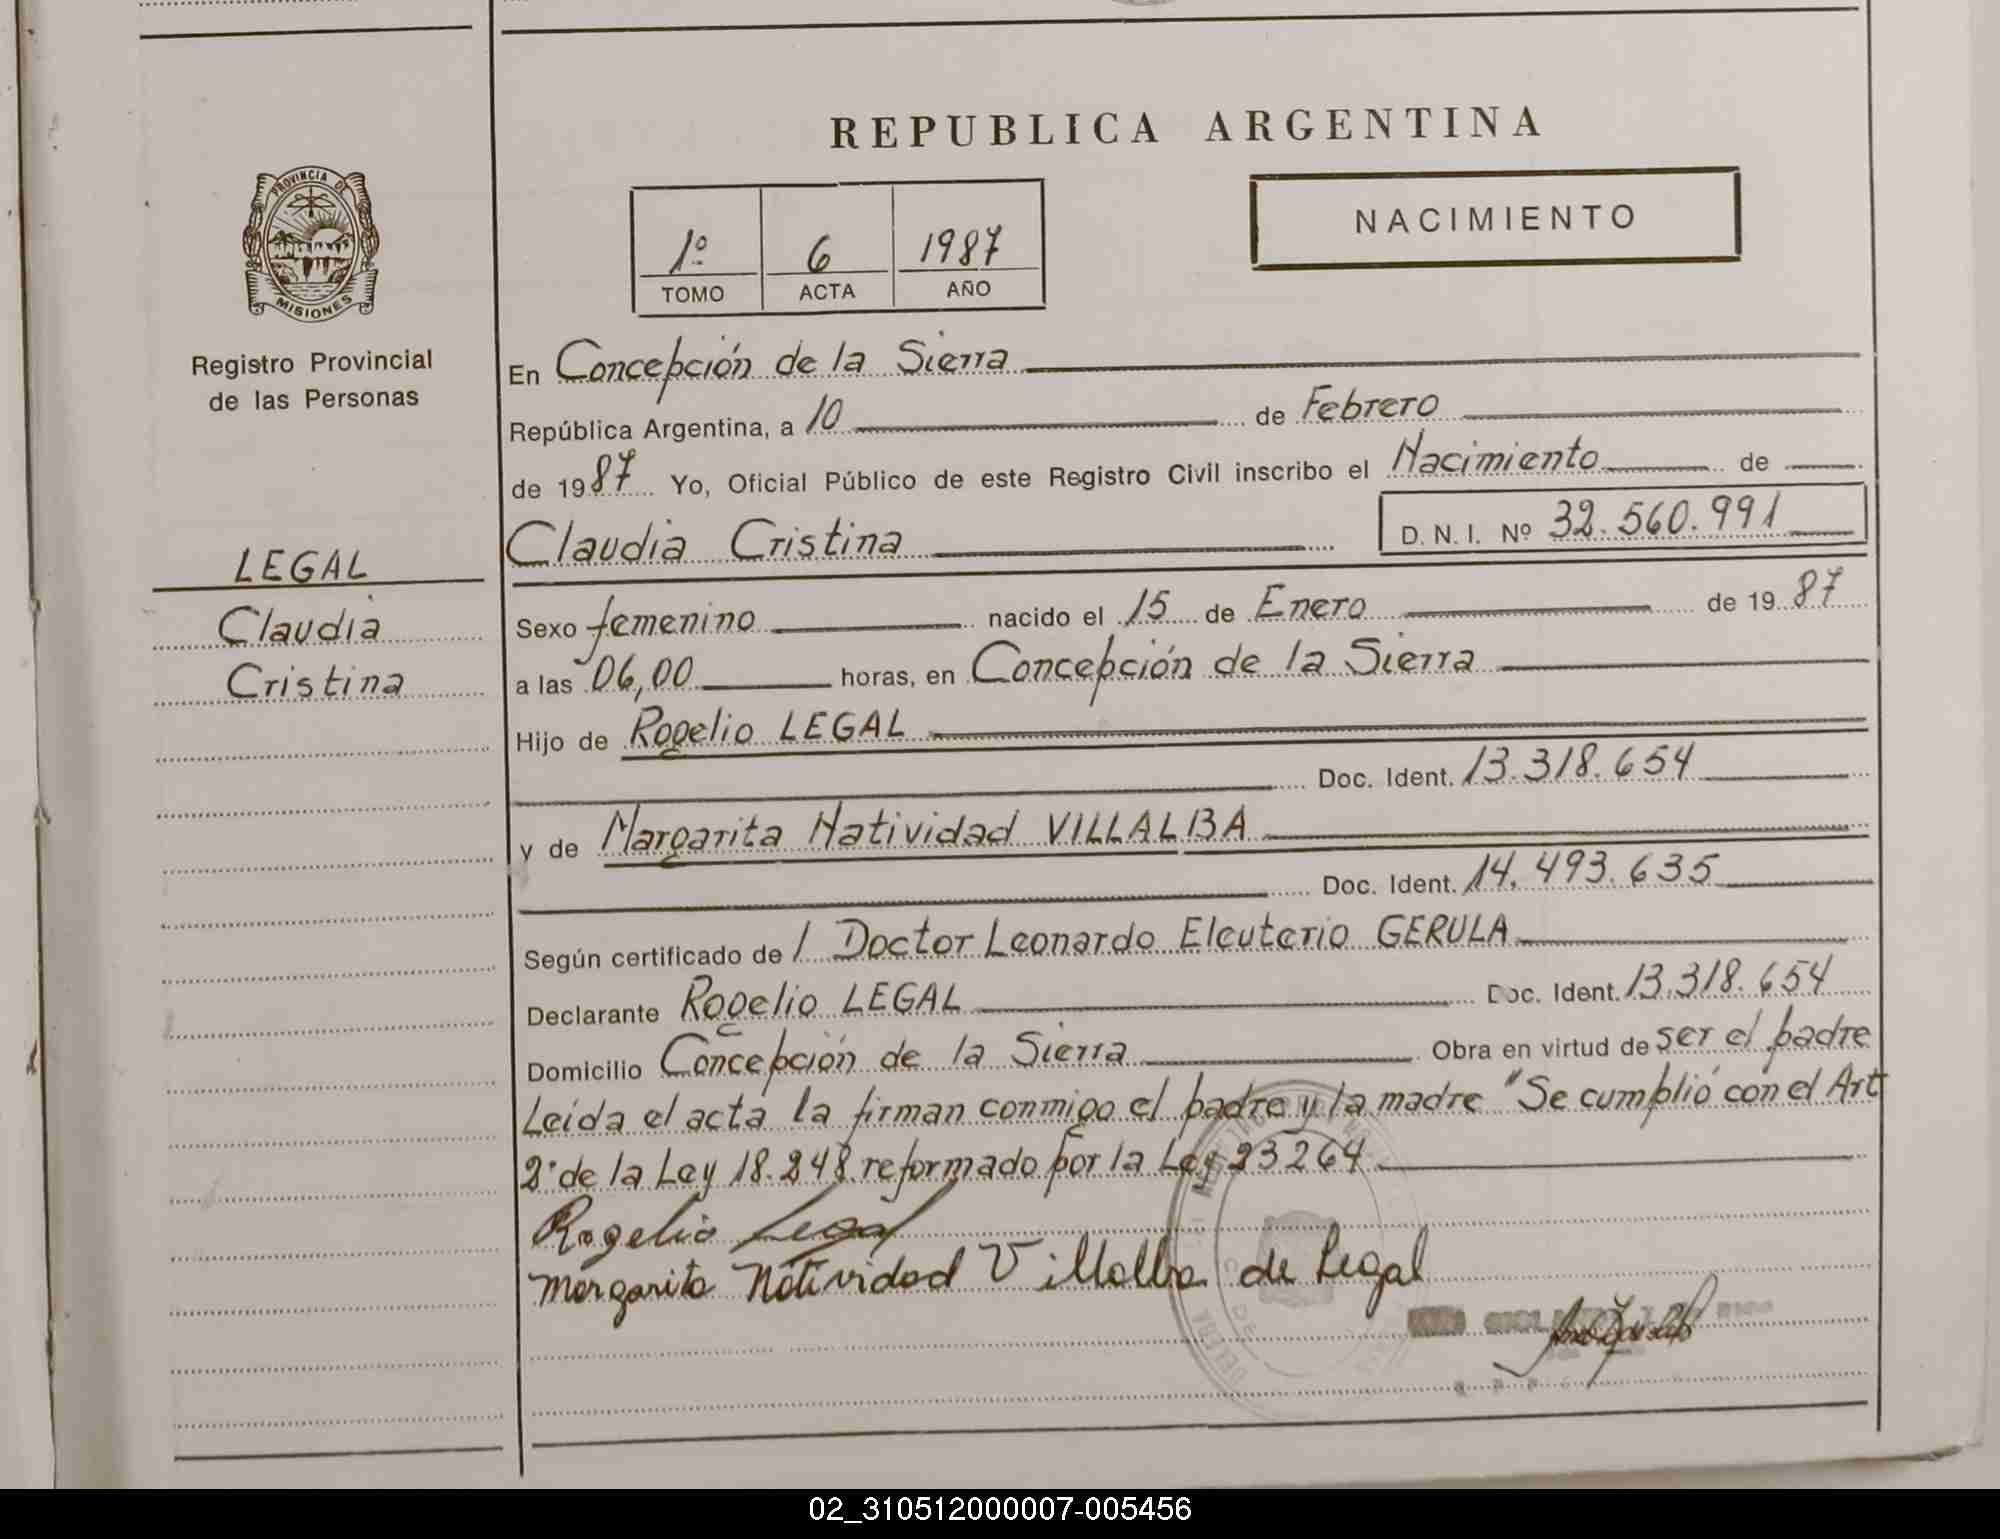 REPUBLICA ARGENTINA
PROVINCIA DE
MISIONES
Registro Provincial
de las Personas
1º 6 1987
TOMO ACTA AÑO
NACIMIENTO
En Concepción de la Sierra
República Argentina, a 10 de Febrero
de 1987 Yo, Oficial Público de este Registro Civil inscribo el Nacimiento de
Claudia Cristina D. N. I. Nº 32.560.991
LEGAL
Claudia
Cristina
Sexo femenino nacido el 15 de Enero de 1987
a las 06,00 horas, en Concepción de la Sierra
Hijo de Rogelio LEGAL
Doc. Ident. 13.318.654
y de Margarita Natividad VILLALBA
Doc. Ident. 14.493.635
Según certificado de / Doctor Leonardo Eleuterio GERULA
Declarante Rogelio LEGAL Doc. Ident. 13.318.654
Domicilio Concepción de la Sierra Obra en virtud de ser el padre
Leída el acta la firman conmigo el padre y la madre "Se cumplió con el Art
2° de la Ley 18.248 reformado por la Ley 23264
Rogelio Legal
Margarita Natividad Villalba de Legal
02_310512000007-005456